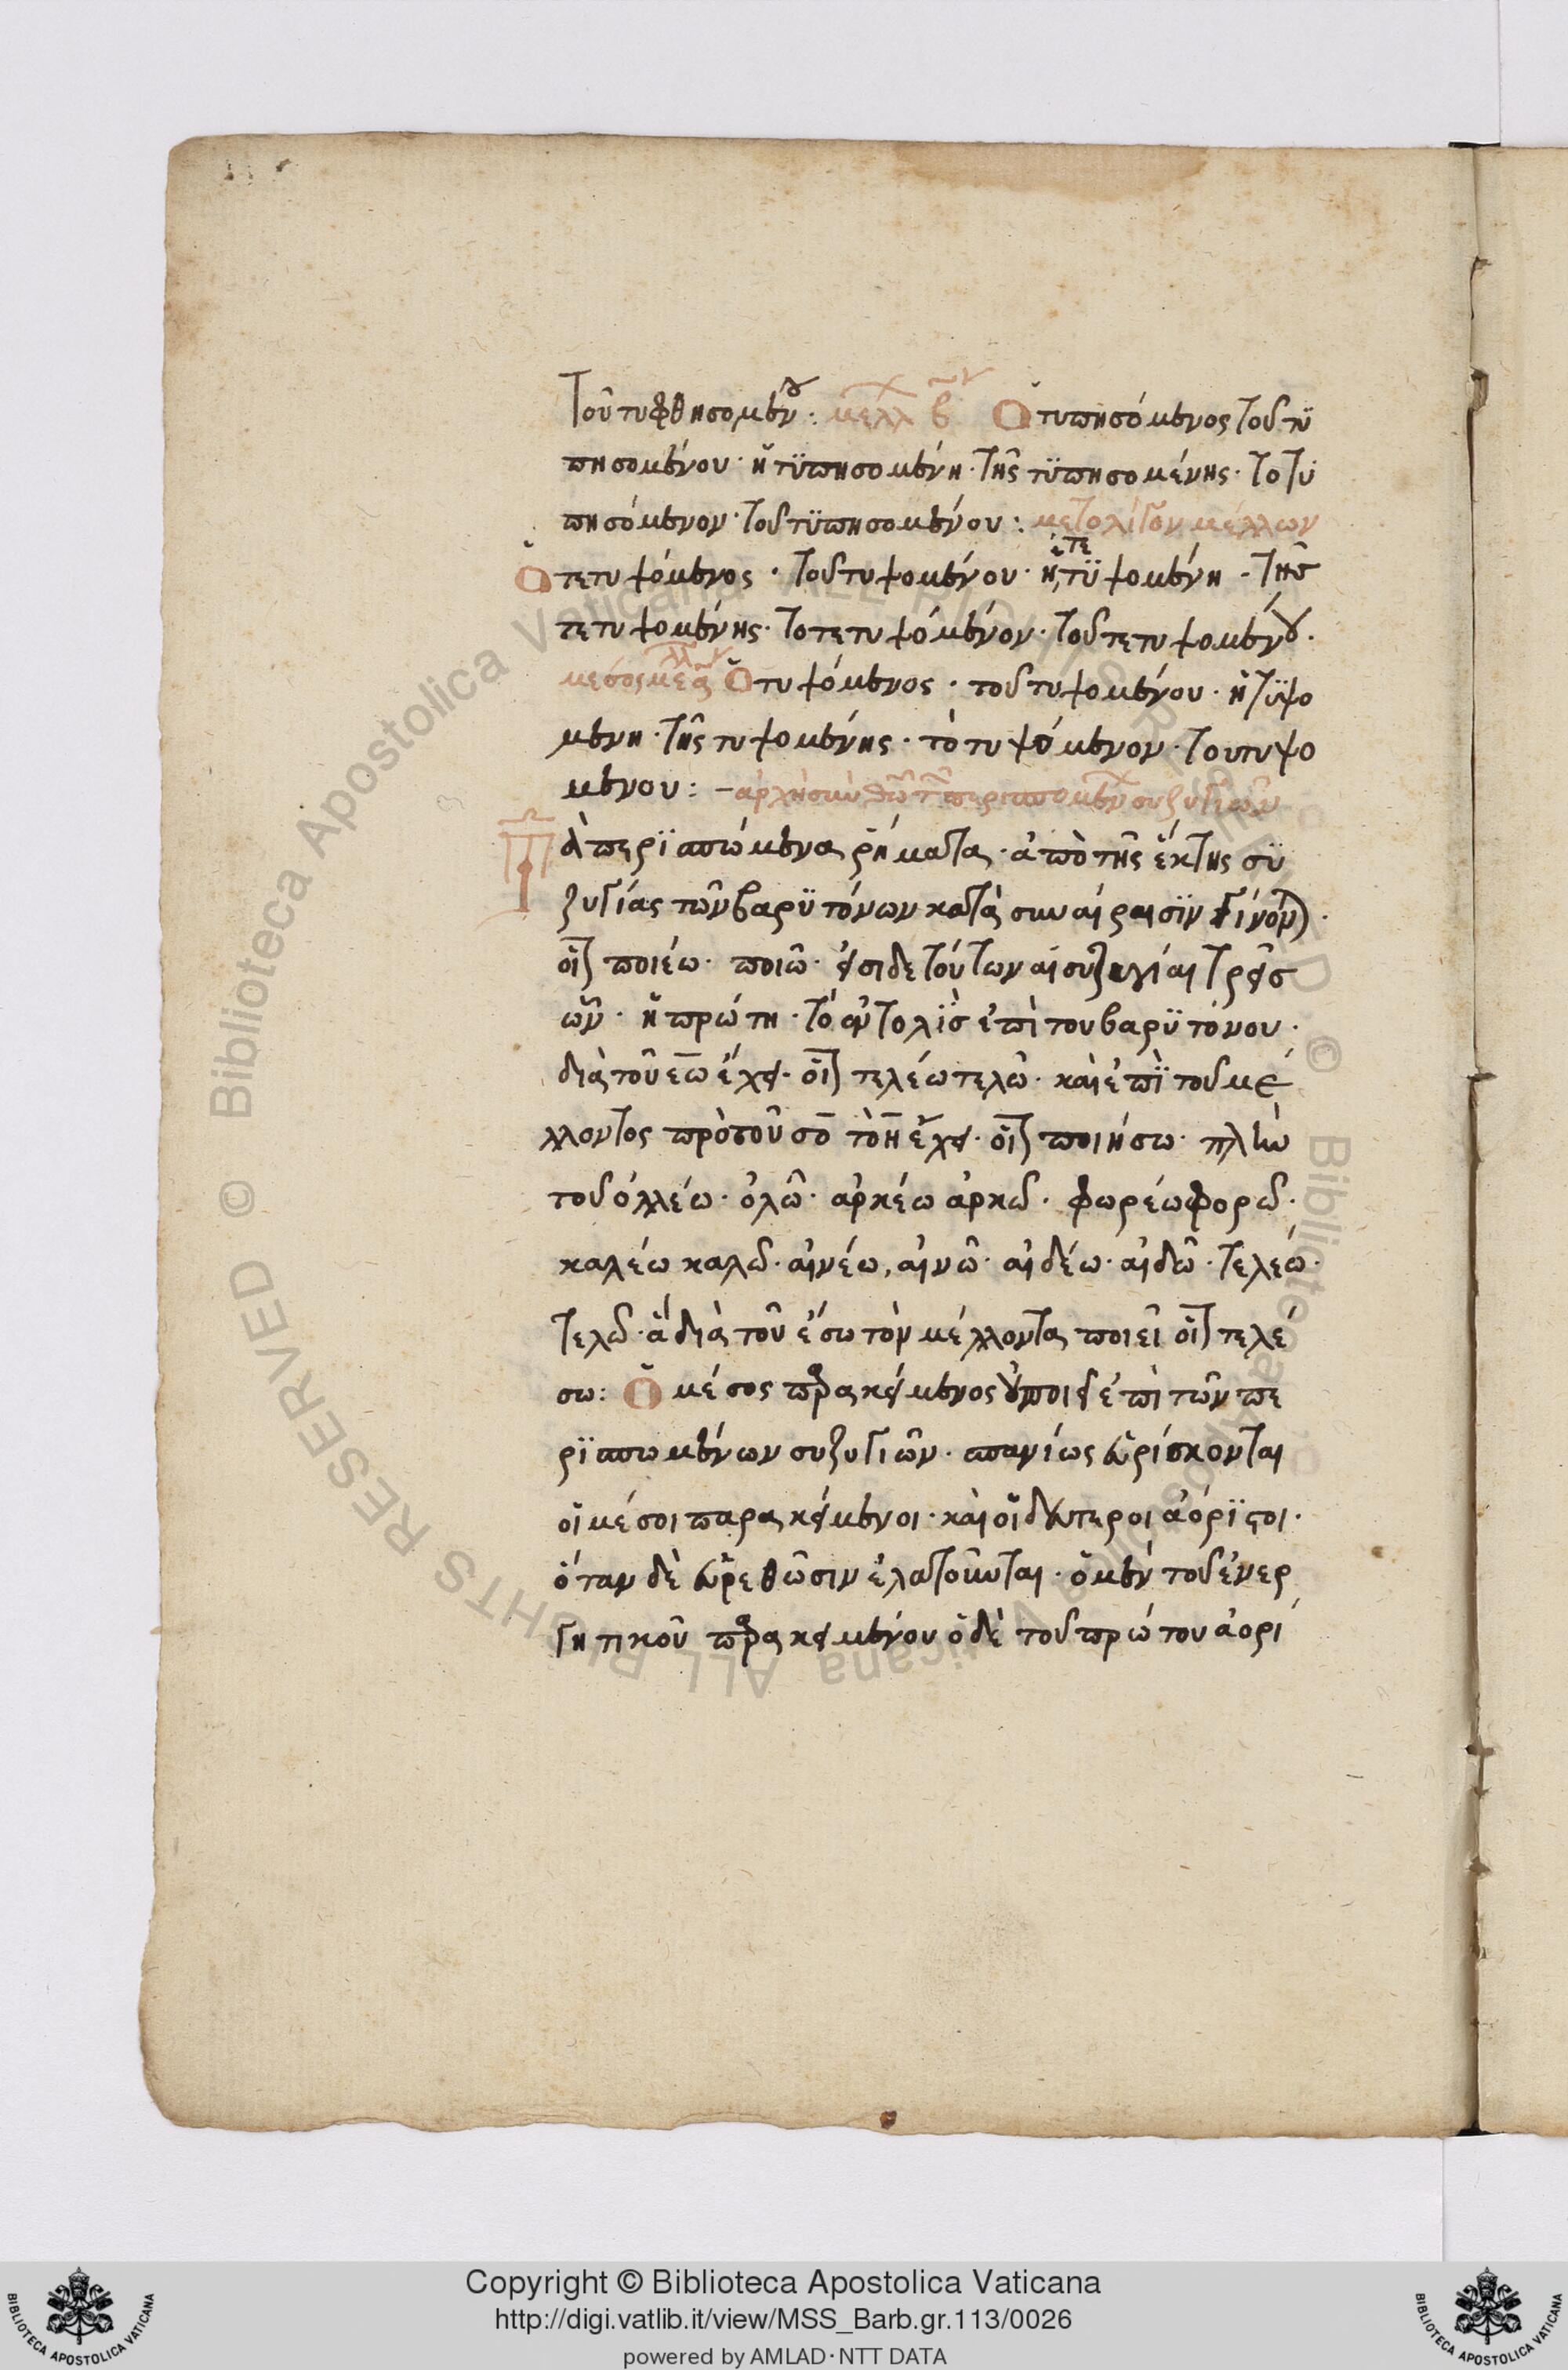 Τοῦ τυφθησομένου : μέλλων β Ὁ τυπησόμενος τοῦ τϋ
πησομένου · ἡ τϋπησομένη · τῆς τϋπησομένης · το τϋ
πησόμενον · τοῦ τϋπησομένου : μετολίγον μέλλων
Ὁ τετυψόμενος · τοῦ τυψομένου · ἡ τετϋψομένη · τῆσ
τετυψομένης · το τετυψόμένον · τοῦ τετυψομένου ·
μέσος μέλλων α Ὁ τυψόμενος · τοῦ τυψομένου · ἡ τϋψο
μενη · τῆς τυψομένης · τὸ τυψόμενον · του τυψο
μενου : – ἀρχὴ σὺν θεῶ τῶν περισπομένων συζυγιῶν
Τὰ περϊσπώμενα ῥήματα · ἀπὸ τῆς ἕκτης σϋ
ζυγίας τῶν βαρϋτόνων κατὰ συναίραισϊν γίνονται ·
οἷον ποιέω · ποιῶ · εἰσι δε τούτων αἱ συζυγίαι τρεῖσ
ὧν · ἡ πρώτη · τὸ ἀντολὶσ ἐπὶ του βαρϋτόνου ·
διὰ τοῦ εω ἔχει · οἷον τελέω τελῶ · καὶ ἐπῒ τοῦ μέ
λλοντος πρὸ τοῦ σο τὸ η ἔχει · οἷον ποιήσω · πλὴν
τοῦ ὀλλέω · ὀλῶ · ἀρκέω ἀρκῶ · φωρέω φορῶ ·
καλέω καλῶ · αἰνέω, αἰνῶ · αἰδέω · αἰδῶ · τελεώ ·
τελῶ · ἃ διὰ τοῦ ἔσω τὸν μέλλοντα ποιεῖ οἷον τελέ
σω : Ὁ μέσος παρακείμενος οὐ ποιεῖ ἐπὶ τῶν πε
ρϊσπωμένων συζυγιῶν · σπανίως εὑρίσκονται
οἱ μέσοι παρακείμενοι · καὶ οἱ δεύτεροι ἀόρϊστοι ·
ὅταν δὲ εὑρεθῶσιν ἐλαττοῦνται · ὁ μὲν τοῦ ἐνερ
γητικοῦ παρακειμένου ὁ δὲ τοῦ πρώτου ἀορί
Copyright © Biblioteca Apostolica Vaticana
http://digi.vatlib.it/view/MSS_Barb.gr.113/0026
powered by AMLAD · NTT DATA